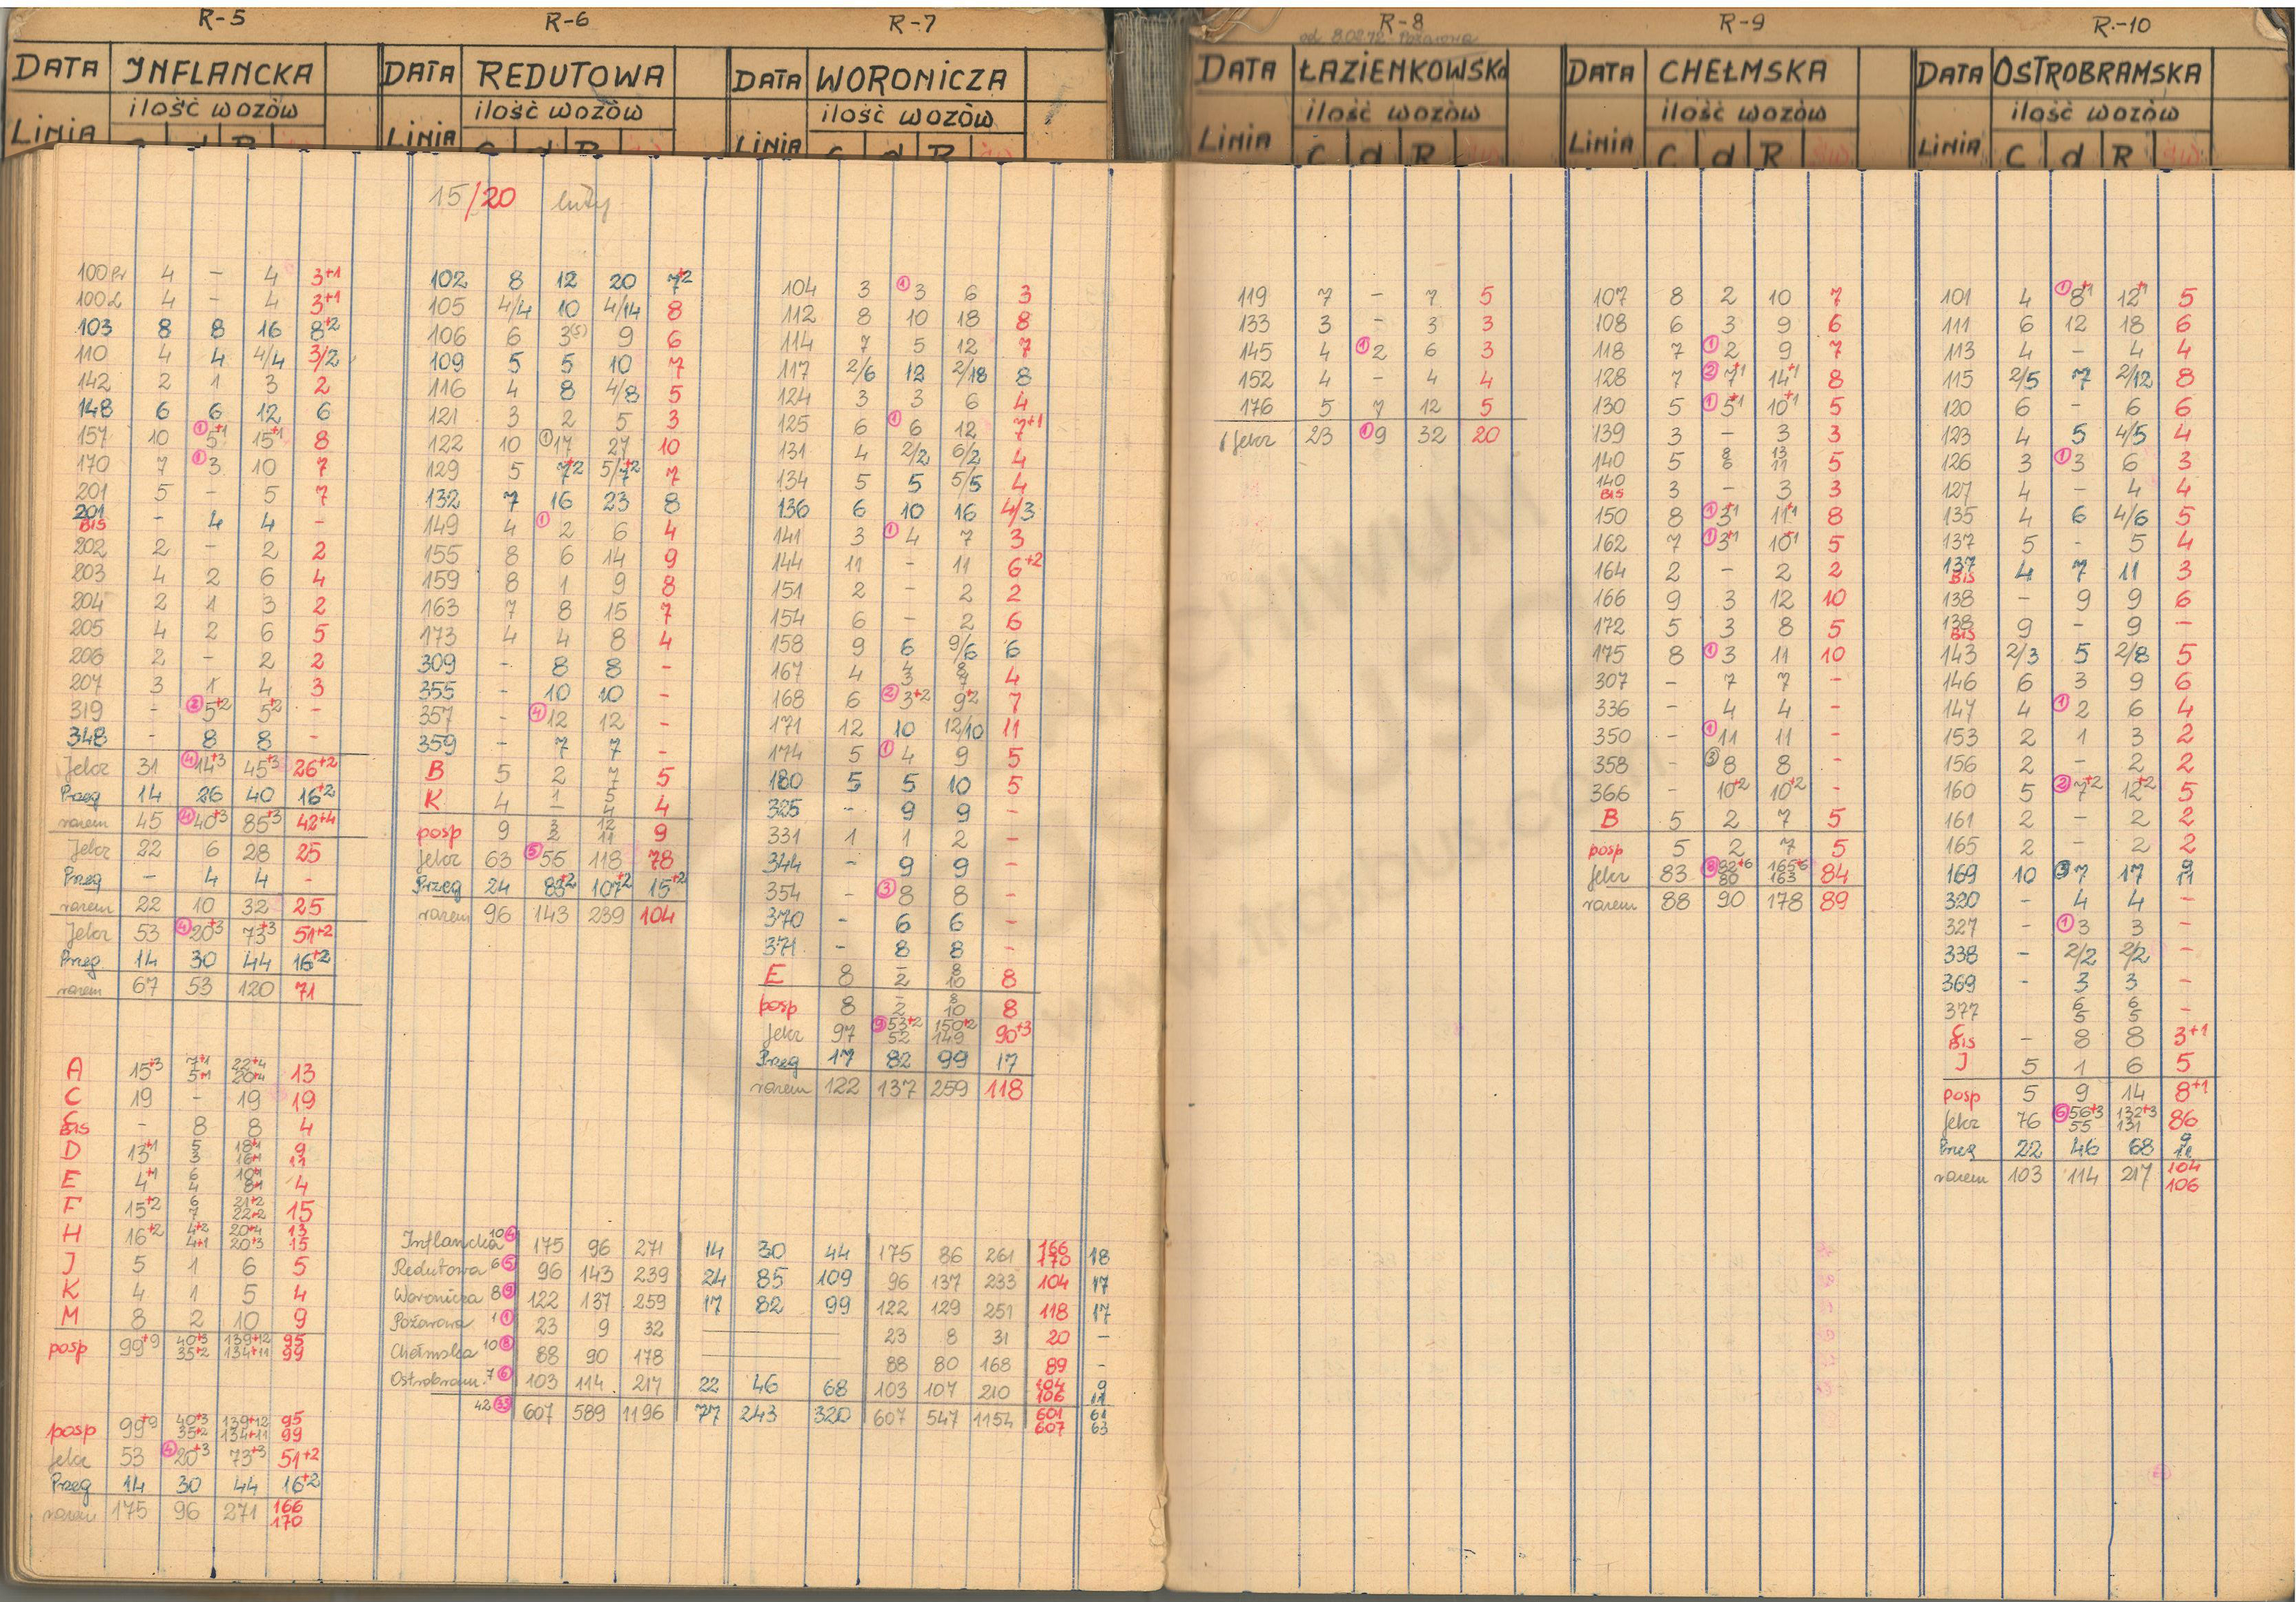 R-5
DATA INFLANCKA
ilość wozów
LINIA
100 Pr 4 - 4 3+1
4 - 4 3+1
103 8 8 16 8+2
110 4 4 4/4 3/2
142 2 1 3 2
148 6 6 12 6
157 10 ①5+1 15+1 8
170 7 ①3 10 7
201 5 - 5 7
201 BIS - 4 4 -
202 2 - 2 2
203 4 2 6 4
204 2 1 3 2
205 4 2 6 5
206 2 - 2 2
207 3 1 4 3
319 - ②5+2 5+2 -
348 - 8 8 -
Jelcz 31 ④14+3 45+3 26+2
Przeg 14 26 40 16+2
razem 45 ④40+3 85+3 42+4
Jelcz 22 6 28 25
Przeg - 4 4 -
razem 22 10 32 25
Jelcz 53 ④20+3 73+3 51+2
Przeg 14 30 44 16+2
razem 67 53 120 71
A 15+3 7+1 22+4 13
5+1 20+4
C 19 - 19 19
C BIS - 8 8 4
D 13+1 5 18+1 9
3 16+1 11
E 4+1 6 10+1 4
4 8+1
F 15+2 6 21+2 15
7 22+2
H 16+2 4+2 20+4 13
4+1 20+3 15
J 5 1 6 5
K 4 1 5 4
M 8 2 10 9
posp 99+9 40+3 139+12 95
35+2 134+11 99
posp 99+9 40+3 139+12 95
35+2 134+11 99
Jelcz 53 ④20+3 73+3 51+2
Przeg 14 30 44 16+2
razem 175 96 271 166
170
R-6
DATA REDUTOWA
ilość wozów
LINIA
15/20 luty
102 8 12 20 7+2
105 4/4 10 4/14 8
106 6 3(5) 9 6
109 5 5 10 7
116 4 8 4/8 5
121 3 2 5 3
122 10 ①17 27 10
129 5 7+2 5/7+2 7
132 7 16 23 8
149 4 ①2 6 4
155 8 6 14 9
159 8 1 9 8
163 7 8 15 7
173 4 4 8 4
309 - 8 8 -
355 - 10 10 -
357 - ④12 12 -
359 - 7 7 -
B 5 2 7 5
K 4 1 5 4
- 4
posp 9 3 12 9
2 11
Jelcz 63 ⑤56 118 78
Przeg 24 83+2 107+2 15+2
razem 96 143 239 104
Inflancka 10④ 175 96 271 14 30 44 175 86 261 166 18
170
Redutowa 6⑤ 96 143 239 24 85 109 96 137 233 104 17
Woronicza 8⑨ 122 137 259 17 82 99 122 129 251 118 17
Pożarowa 1① 23 9 32 23 8 31 20 -
Chełmska 10⑧ 88 90 178 88 80 168 89 -
Ostrobram. 7⑥ 103 114 217 22 46 68 103 107 210 104 9
106 11
42 ㉝ 607 589 1196 77 243 320 607 547 1154 601 61
607 63
R-7
DATA WORONICZA
ilość wozów
LINIA C d R
104 3 ①3 6 3
112 8 10 18 8
114 7 5 12 7
117 2/6 12 2/18 8
124 3 3 6 4
125 6 ①6 12 7+1
131 4 2/2 6/2 4
134 5 5 5/5 4
136 6 10 16 4/3
141 3 ①4 7 3
144 11 - 11 6+2
151 2 - 2 2
154 6 - 2 6
158 9 6 9/6 6
167 4 4 8 4
3 7
168 6 ②3+2 9+2 7
171 12 10 12/10 11
174 5 ①4 9 5
180 5 5 10 5
325 - 9 9 -
331 1 1 2 -
344 - 9 9 -
354 - ③8 8 -
370 - 6 6 -
371 - 8 8 -
E 8 - 8 8
2 10
posp 8 - 8 8
2 10
Jelcz 97 ⑨53+2 150+2 90+3
52 149
Przeg 17 82 99 17
razem 122 137 259 118
R-8
od 8.02.72 - Pożarowa
DATA ŁAZIENKOWSKA
ilość wozów
LINIA C d R
119 7 - 7 5
133 3 - 3 3
145 4 ①2 6 3
152 4 - 4 4
176 5 7 12 5
Jelcz 23 ①9 32 20
R-9
DATA CHEŁMSKA
ilość wozów
LINIA C d R
107 8 2 10 7
108 6 3 9 6
118 7 ①2 9 7
128 7 ②7+1 14+1 8
130 5 ①5+1 10+1 5
139 3 - 3 3
140 5 8 13 5
6 11
140 BIS 3 - 3 3
150 8 ①3+1 11+1 8
162 7 ①3+1 10+1 5
164 2 - 2 2
166 9 3 12 10
172 5 3 8 5
175 8 ①3 11 10
307 - 7 7 -
336 - 4 4 -
350 - ①11 11 -
358 - ③8 8 -
366 - 10+2 10+2 -
B 5 2 7 5
posp 5 2 7 5
Jelcz 83 ⑧82+6 165+6 84
80 163
razem 88 90 178 89
R-10
DATA OSTROBRAMSKA
ilość wozów
LINIA C d R
101 4 ①8+1 12+1 5
111 6 12 18 6
113 4 - 4 4
115 2/5 7 2/12 8
120 6 - 6 6
123 4 5 4/5 4
126 3 ①3 6 3
127 4 - 4 4
135 4 6 4/6 5
137 5 - 5 4
137 BIS 4 7 11 3
138 - 9 9 6
138 BIS 9 - 9 -
143 2/3 5 2/8 5
146 6 3 9 6
147 4 ①2 6 4
153 2 1 3 2
156 2 - 2 2
160 5 ②7+2 12+2 5
161 2 - 2 2
165 2 - 2 2
169 10 ③7 17 9
11
320 - 4 4 -
327 - ①3 3 -
338 - 2/2 2/2 -
369 - 3 3 -
377 6 6 -
5 5
C BIS - 8 8 3+1
J 5 1 6 5
posp 5 9 14 8+1
Jelcz 76 ⑥56+3 132+3 86
55 131
Przeg 22 46 68 9
11
razem 103 114 217 104
106